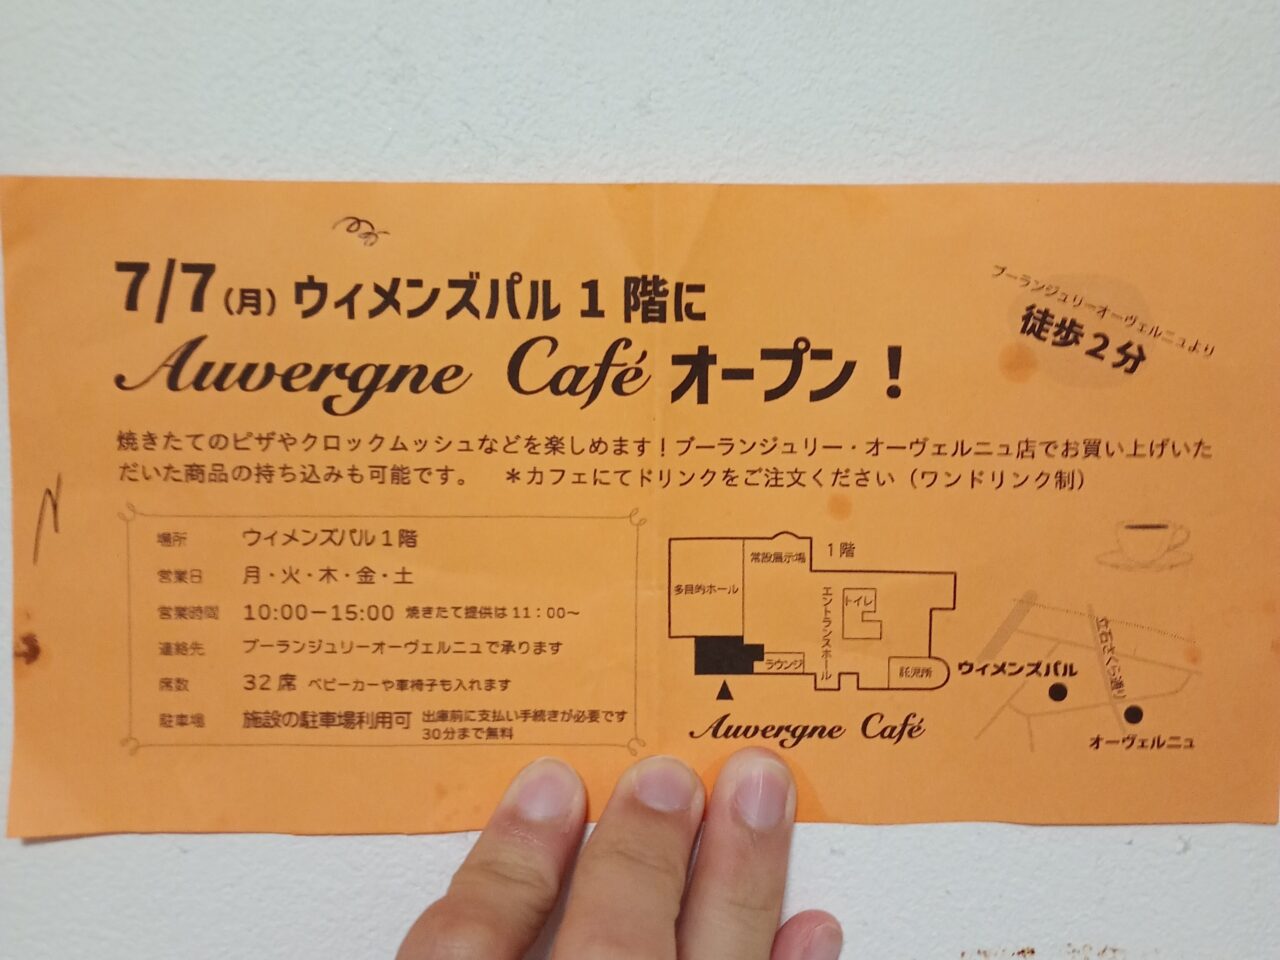 7/7(月) ウィメンズパル 1 階に
Auvergne Café オープン！
ブーランジュリーオーヴェルニュより
徒歩2分
焼きたてのピザやクロックムッシュなどを楽しめます！ブーランジュリー・オーヴェルニュ店でお買い上げいた
だいた商品の持ち込みも可能です。 ＊カフェにてドリンクをご注文ください（ワンドリンク制）
場所 ウィメンズパル1階
営業日 月・火・木・金・土
営業時間 10:00ー15:00 焼きたて提供は11：00〜
連絡先 ブーランジュリーオーヴェルニュで承ります
席数 32席 ベビーカーや車椅子も入れます
駐車場 施設の駐車場利用可 出庫前に支払い手続きが必要です
30分まで無料
1階
常設展示場
多目的ホール
エントランスホール
トイレ
ラウンジ
託児所
Auvergne Café
立石さくら通り
ウィメンズパル
オーヴェルニュ